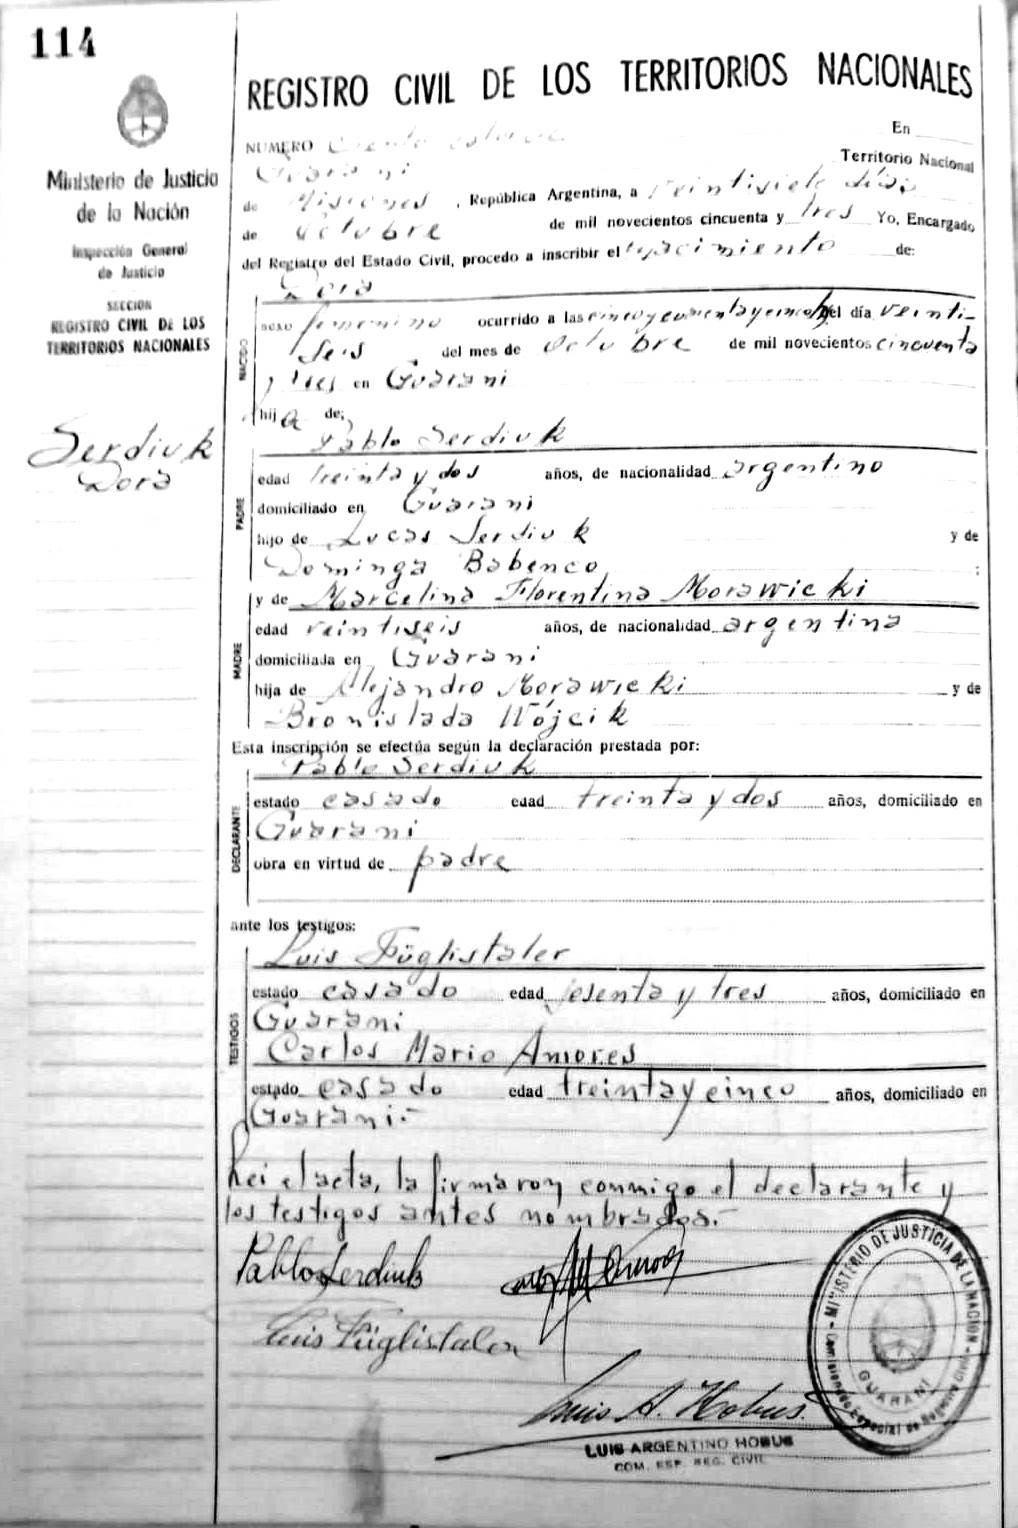 114
REGISTRO CIVIL DE LOS TERRITORIOS NACIONALES
Ministerio de Justicia
de la Nación
Inspección General
de Justicia
SECCION
REGISTRO CIVIL DE LOS
TERRITORIOS NACIONALES
Serdiuk
Dora
NUMERO Ciento catorce En
Guarani Territorio Nacional
de Misiones, República Argentina, a veintisiete dias
de Octubre de mil novecientos cincuenta y tres Yo, Encargado
del Registro del Estado Civil, procedo a inscribir el nacimiento de:
Dora
NACIDO
sexo femenino ocurrido a las cinco y cuarenta y cinco h del día veinti-
seis del mes de Octubre de mil novecientos cincuenta
y tres en Guarani
hija de:
Pablo Serdiuk
PADRE
edad treinta y dos años, de nacionalidad argentino
domiciliado en Guarani
hijo de Lucas Serdiuk y de
Dominga Babenco ;
y de Marcelina Florentina Morawicki
MADRE
edad veintiseis años, de nacionalidad argentina
domiciliada en Guarani
hija de Alejandro Morawicki y de
Bronislada Wójcik
Esta inscripción se efectúa según la declaración prestada por:
Pablo Serdiuk
DECLARANTE
estado casado edad treinta y dos años, domiciliado en
Guarani
obra en virtud de padre
ante los testigos:
Luis Füglistaler
TESTIGOS
estado casado edad sesenta y tres años, domiciliado en
Guarani
Carlos Mario Amores
estado casado edad treinta y cinco años, domiciliado en
Guarani.-
Lei el acta, la firmaron conmigo el declarante y
los testigos antes nombrados.-
Pablo Serdiuk
Luis Füglistaler
Luis A. Hobus.
LUIS ARGENTINO HOBUS
COM. ESP. REG. CIVIL
MINISTERIO DE JUSTICIA DE LA NACION
GUARANI
Comisionado Especial de Registro Civil